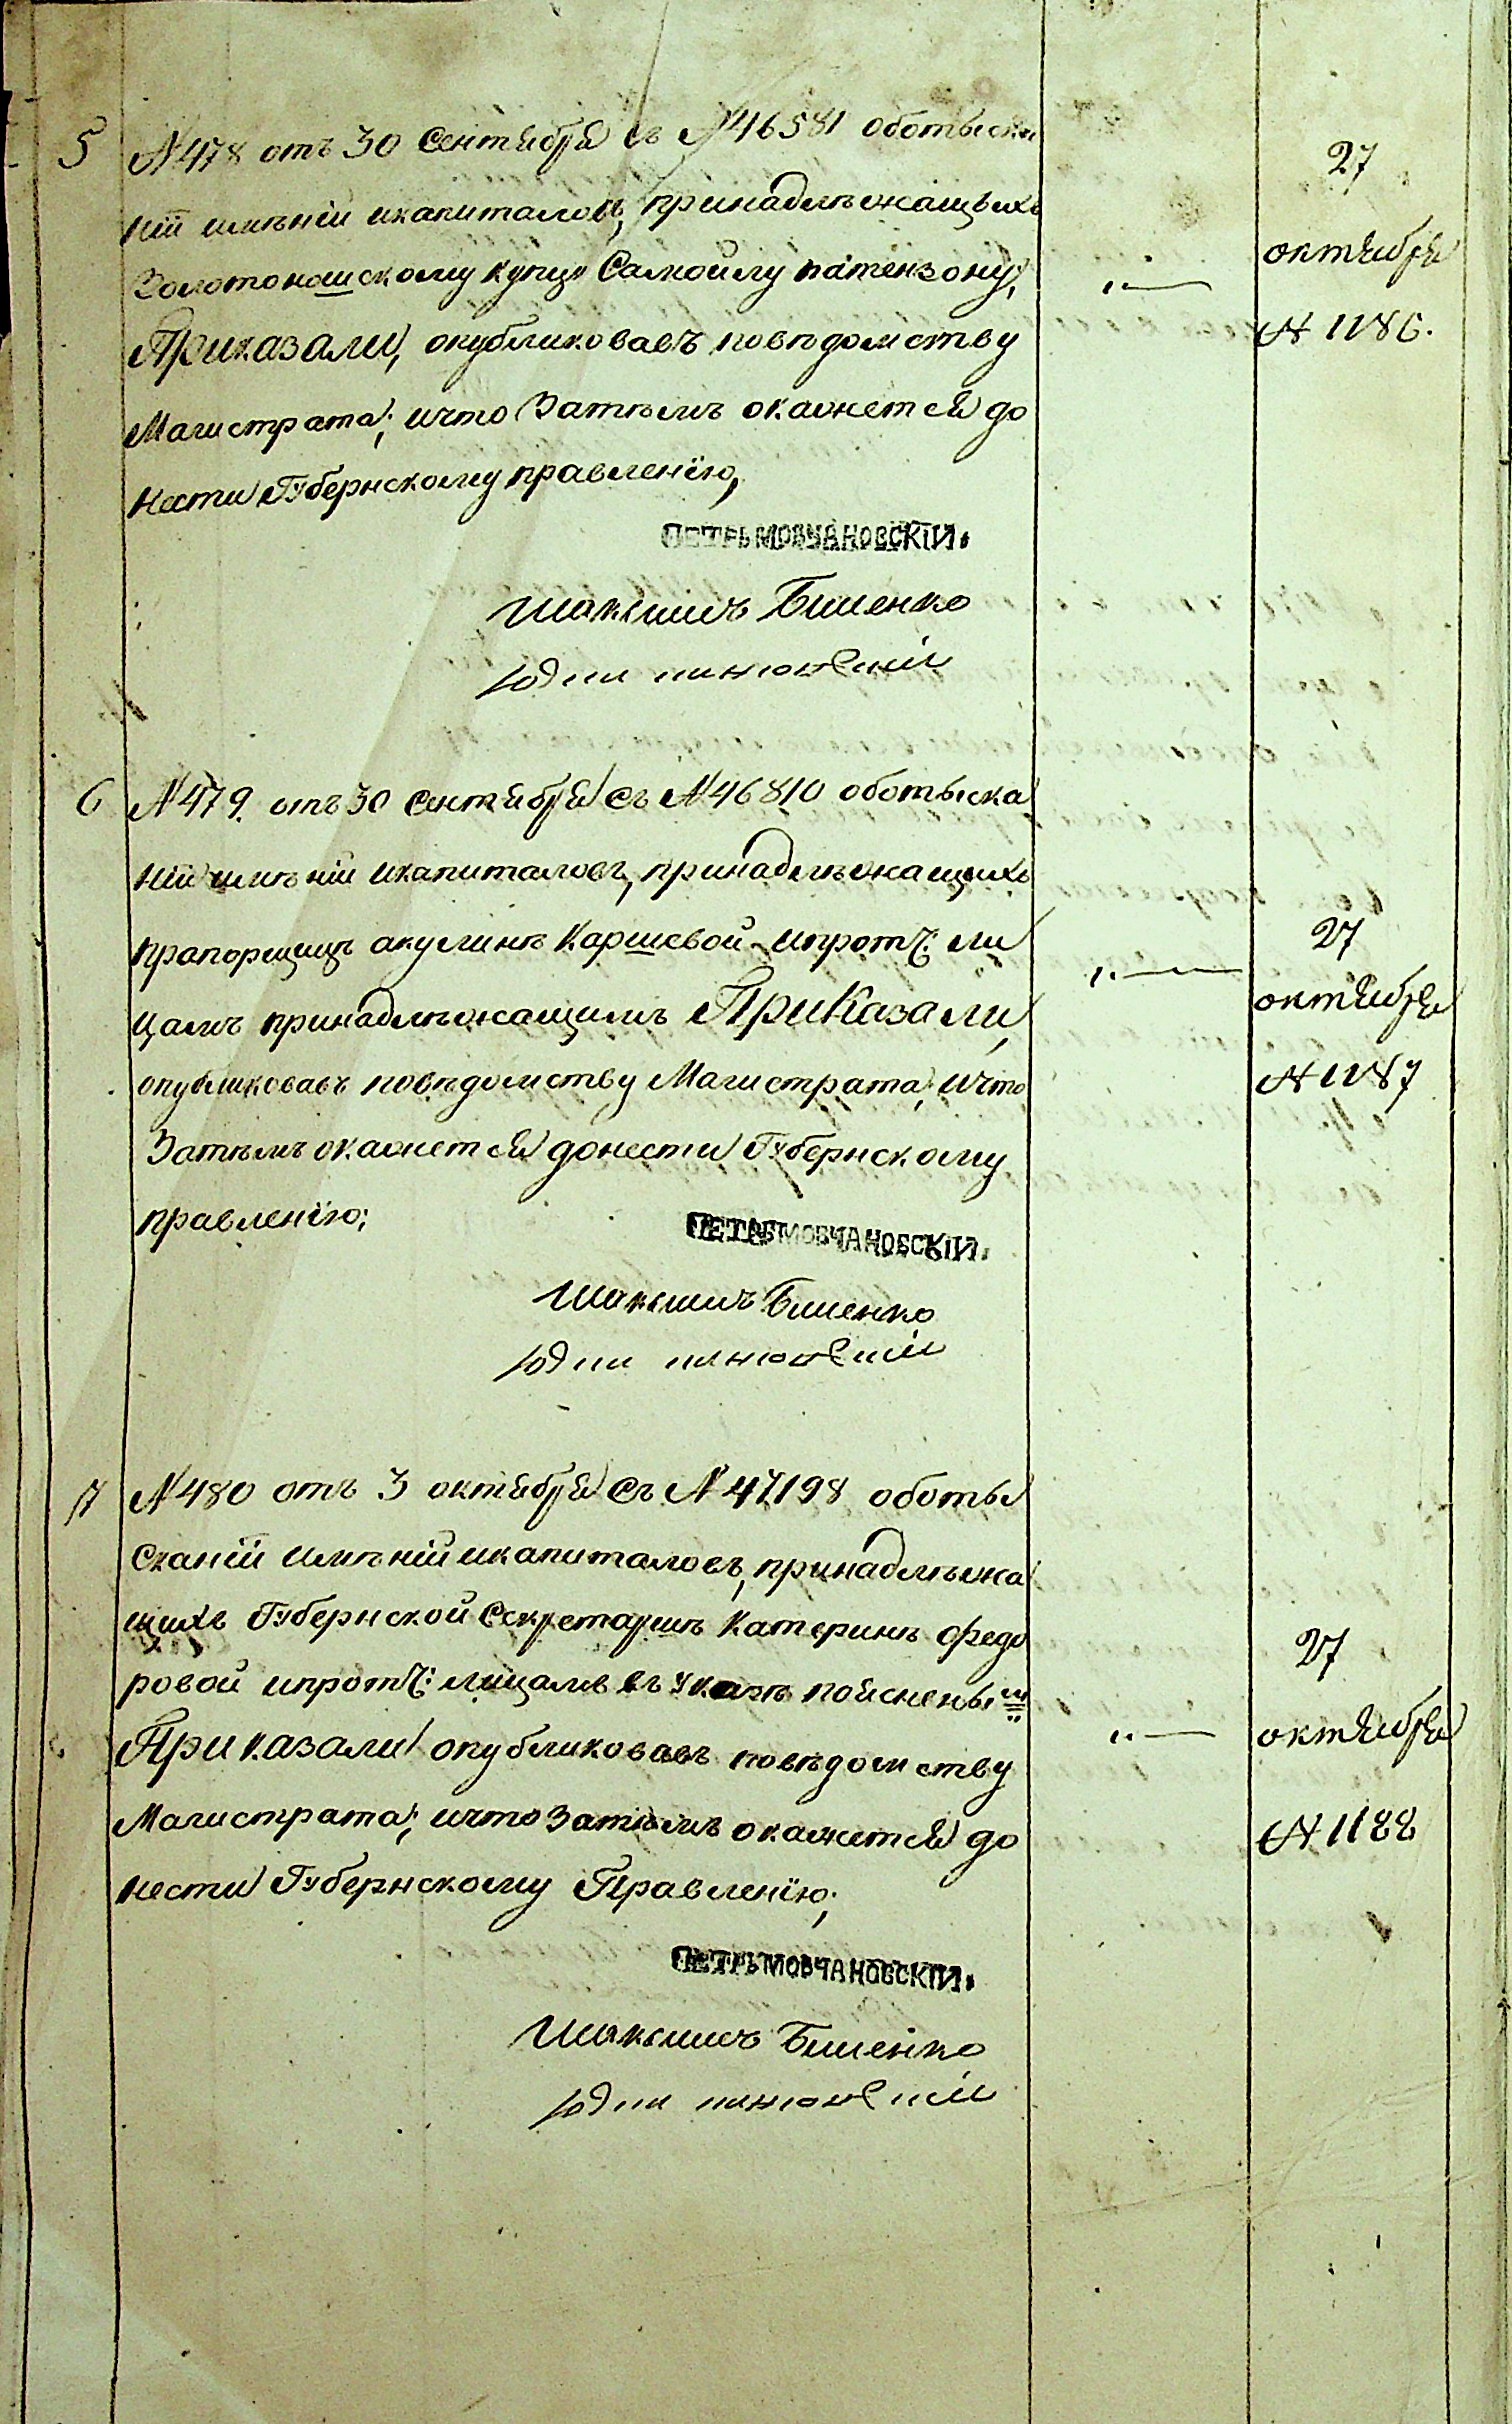 5
№ 478 отъ 30 Сентября съ № 46581 оботыска
ніи имѣніи икапиталовъ, принадлѣжащыхъ
Золотоношскому купцу Самойлу патензону,
Приказали, опубликовавъ повѣдомству
Магистрата; ичто Затѣмъ окажется до
нести Губернскому правленїю,
ПЕТРЪ МОВЧАНОВСКІЙ.
Максимъ Биленко
27
октября
№ 1186.
6
№ 479. отъ 30 Сентября съ № 46810 оботыска
ніи имѣніи икапиталовъ, принадлѣжащихъ
прапорщицѣ акулинѣ Каршевой ипротч: ли
цамъ принадлѣжащимъ Приказали,
опубликовавъ повѣдомству Магистрата, ичто
Затѣмъ окажется донести Губернскому
правленїю;
ПЕТРЪ МОВЧАНОВСКІЙ.
Максимъ Биленко
27
октября
№ 1187
7
№ 480 отъ 3 октября съ № 47198 оботы
Сканіи имѣніи икапиталовъ, принадлѣжа
щихъ Губернской Секретаршѣ Катеринѣ Федо
ровой ипротч: лицамъ въ Указѣ пояснены
Приказали опубликовавъ повѣдомству
Магистрата; ичто Затѣмъ окажется до
нести Губернскому Правленїю;
ПЕТРЪ МОВЧАНОВСКІЙ.
Максимъ Биленко
27
октября
№ 1188